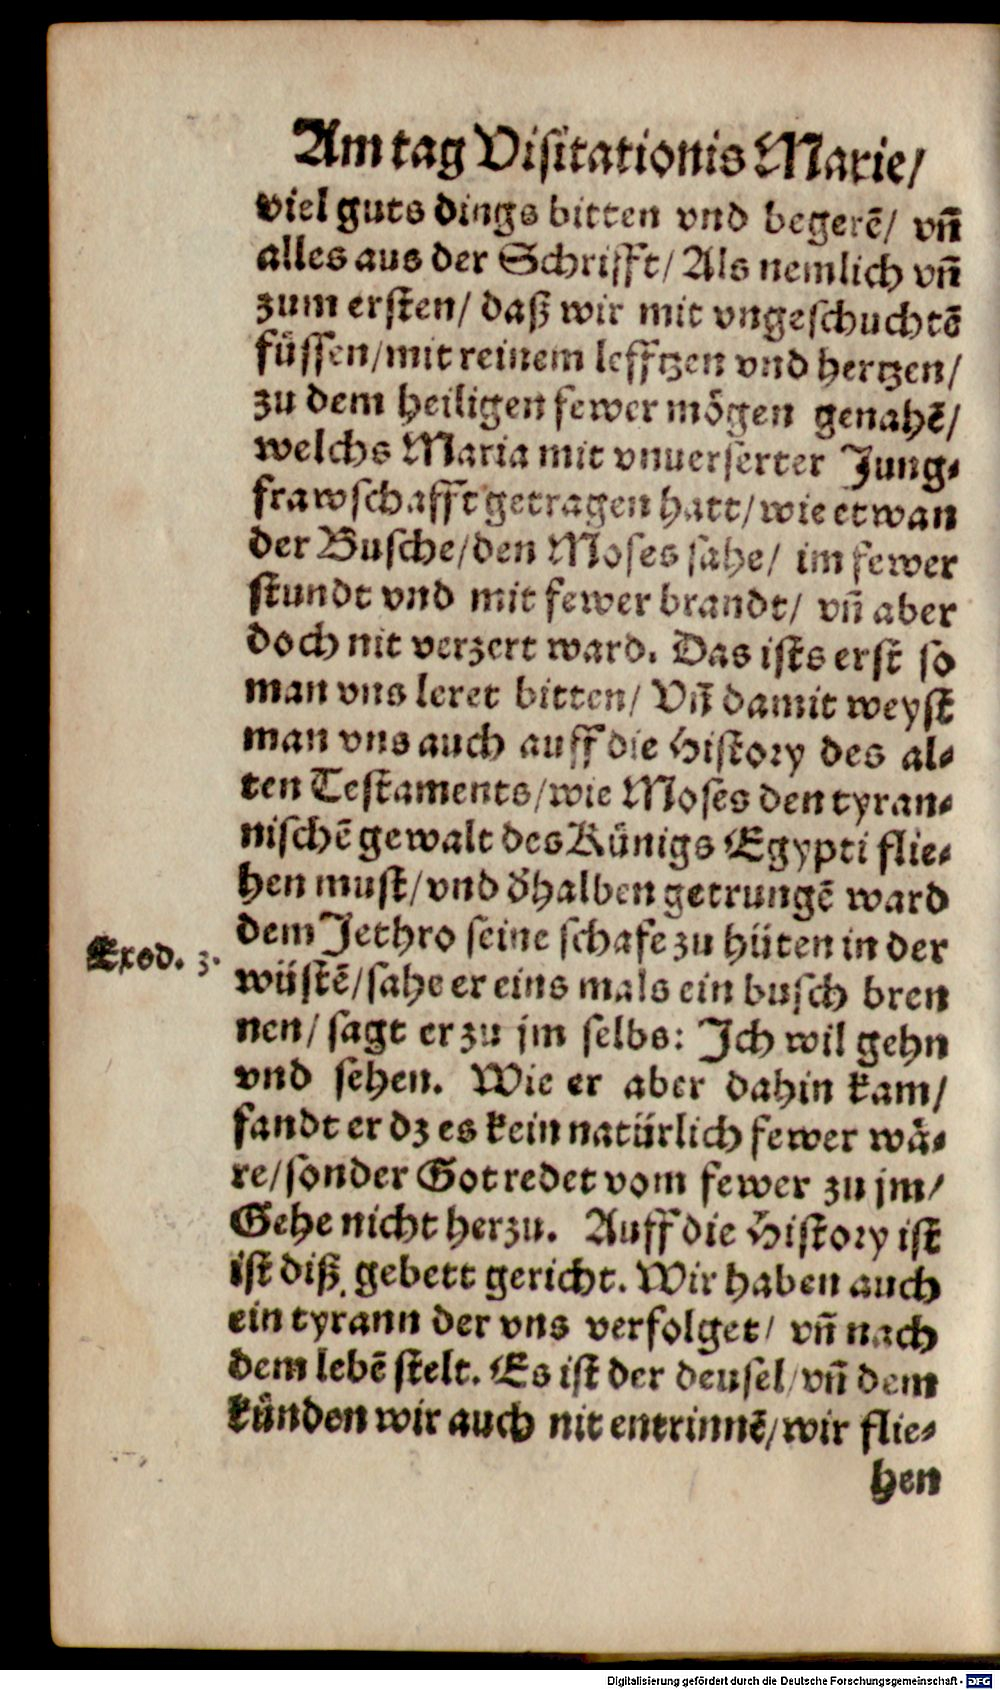 Am tag Visitationis Marie/
viel guts dings bitten vnd begerē/ vñ
alles aus der Schrifft/ Als nemlich vñ
zum ersten/ daß wir mit vngeschuchtē
füssen/ mit reinem lefftzen vnd hertzen/
zu dem heiligen fewer mögen genahē/
welchs Maria mit vnuerserter Jung-
frawschafft getragen hatt/ wie etwan
der Busche/ den Moses sahe/ im fewer
stundt vnd mit fewer brandt/ vñ aber
doch nit verzert ward. Das ists erst so
man vns leret bitten/ Vñ damit weyst
man vns auch auff die History des al-
ten Testaments/ wie Moses den tyran-
nischē gewalt des Künigs Egypti flie-
hen must/ vnd dhalben getrungē ward
dem Jethro seine schafe zu hüten in der
Exod. 3.
wüstē/ sahe er eins mals ein busch bren
nen/ sagt er zu jm selbs: Ich wil gehn
vnd sehen. Wie er aber dahin kam/
fandt er dz es kein natürlich fewer wä-
re/ sonder Got redet vom fewer zu jm/
Gehe nicht herzu. Auff die History ist
ist diß gebett gericht. Wir haben auch
ein tyrann der vns verfolget/ vñ nach
dem lebē stelt. Es ist der deufel/ vñ dem
künden wir auch nit entrinnē/ wir flie-
hen
Digitalisierung gefördert durch die Deutsche Forschungsgemeinschaft - DFG